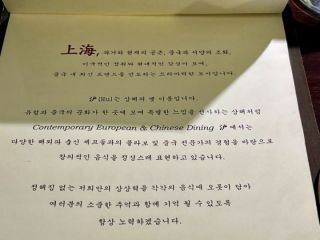 上海, 과거와 현재의 공존, 중국과 서양의 조화,
이국적인 정취와 현대적인 감성이 모여,
중국 내 최신 트렌드를 선도하는 드라마틱한 도시입니다.
沪(Hu)는 상해의 옛 이름입니다.
유럽과 중국의 문화가 한 곳에 모여 특별한 느낌을 선사하는 상해처럼
Contemporary European & Chinese Dining 沪에서는
다양한 해외와 출신 셰프들과의 콜라보 및 중국 전문가의 경험을 바탕으로
창의적인 음식을 정성스레 표현하고 있습니다.
정해짐 없는 저희만의 상상력을 각각의 음식에 오롯이 담아
여러분의 소중한 추억과 함께 기억 될 수 있도록
항상 노력하겠습니다.